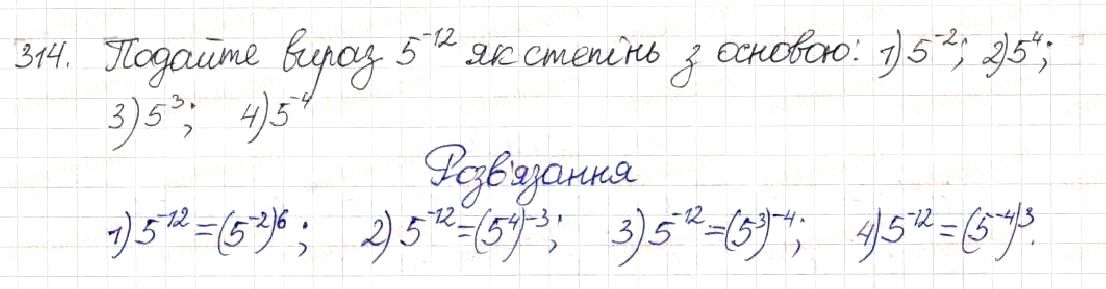 314. Подайте вираз 5⁻¹² як степінь з основою: 1) 5⁻²; 2) 5⁴;
3) 5³; 4) 5⁻⁴
Розв'язання
1) 5⁻¹² = (5⁻²)⁶; 2) 5⁻¹² = (5⁴)⁻³; 3) 5⁻¹² = (5³)⁻⁴; 4) 5⁻¹² = (5⁻⁴)³.